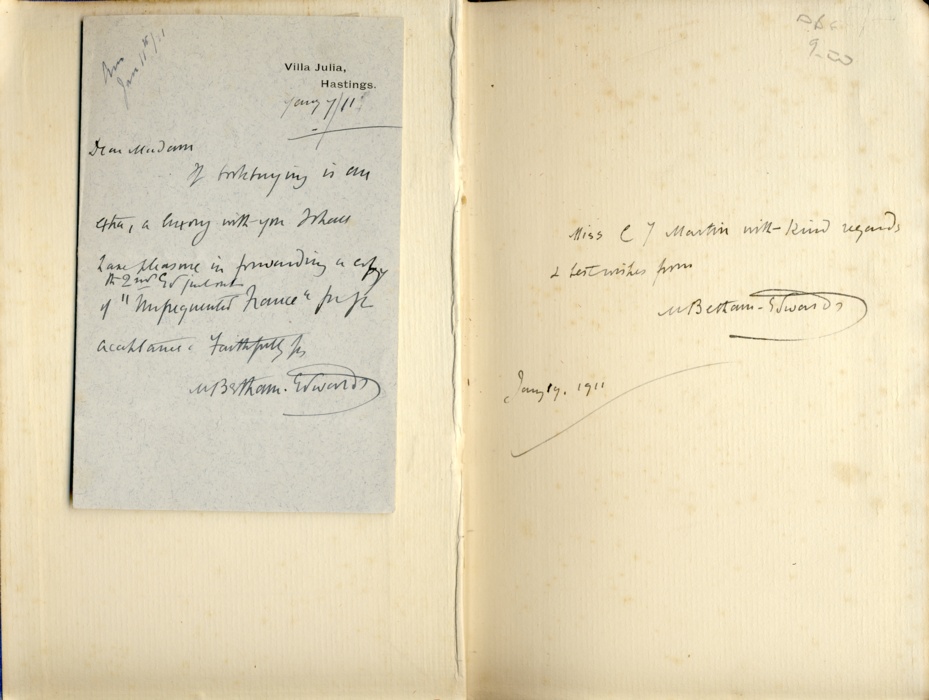 Jan 11th/11
Villa Julia,
Hastings.
Jany 7/11
Dear Madam
If bookbuying is an
extra, a luxury with you I shall
have pleasure in forwarding a copy
2nd Ed just out
of "Unfrequented France" for yr
acceptance. Faithfully yrs
M Betham-Edwards
9-00
Miss C J Martin with kind regards
& best wishes from
M Betham-Edwards
Jany 19. 1911